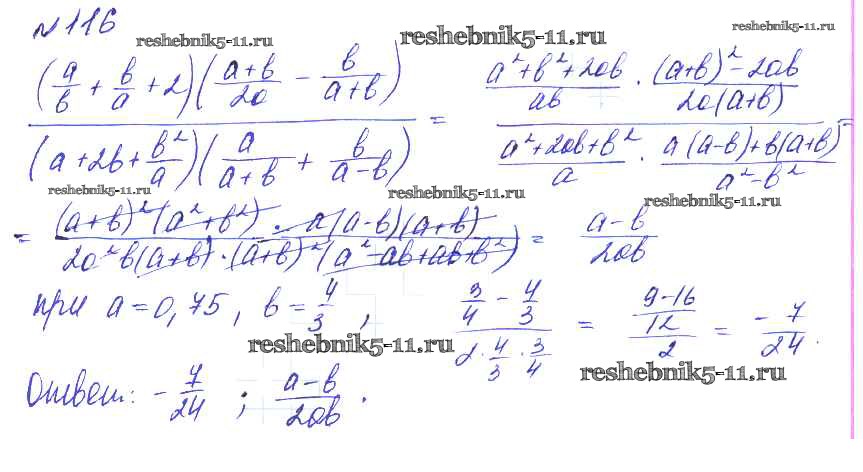 №116
reshebnik5-11.ru reshebnik5-11.ru reshebnik5-11.ru
((a/b + b/a + 2)((a+b)/2a − b/(a+b))) / ((a+2b+b²/a)(a/(a+b) + b/(a−b))) = ((a²+b²+2ab)/ab · ((a+b)²−2ab)/(2a(a+b))) / ((a²+2ab+b²)/a · (a(a−b)+b(a+b))/(a²−b²)) =
reshebnik5-11.ru reshebnik5-11.ru reshebnik5-11.ru
= ((a+b)²(a²+b²) · a(a−b)(a+b)) / (2a²b(a+b)·(a+b)²(a²−ab+ab+b²)) = (a−b)/2ab
при a=0,75, b=4/3, (3/4 − 4/3)/(2·4/3·3/4) = ((9−16)/12)/2 = −7/24.
reshebnik5-11.ru reshebnik5-11.ru
Ответ: −7/24; (a−b)/2ab.